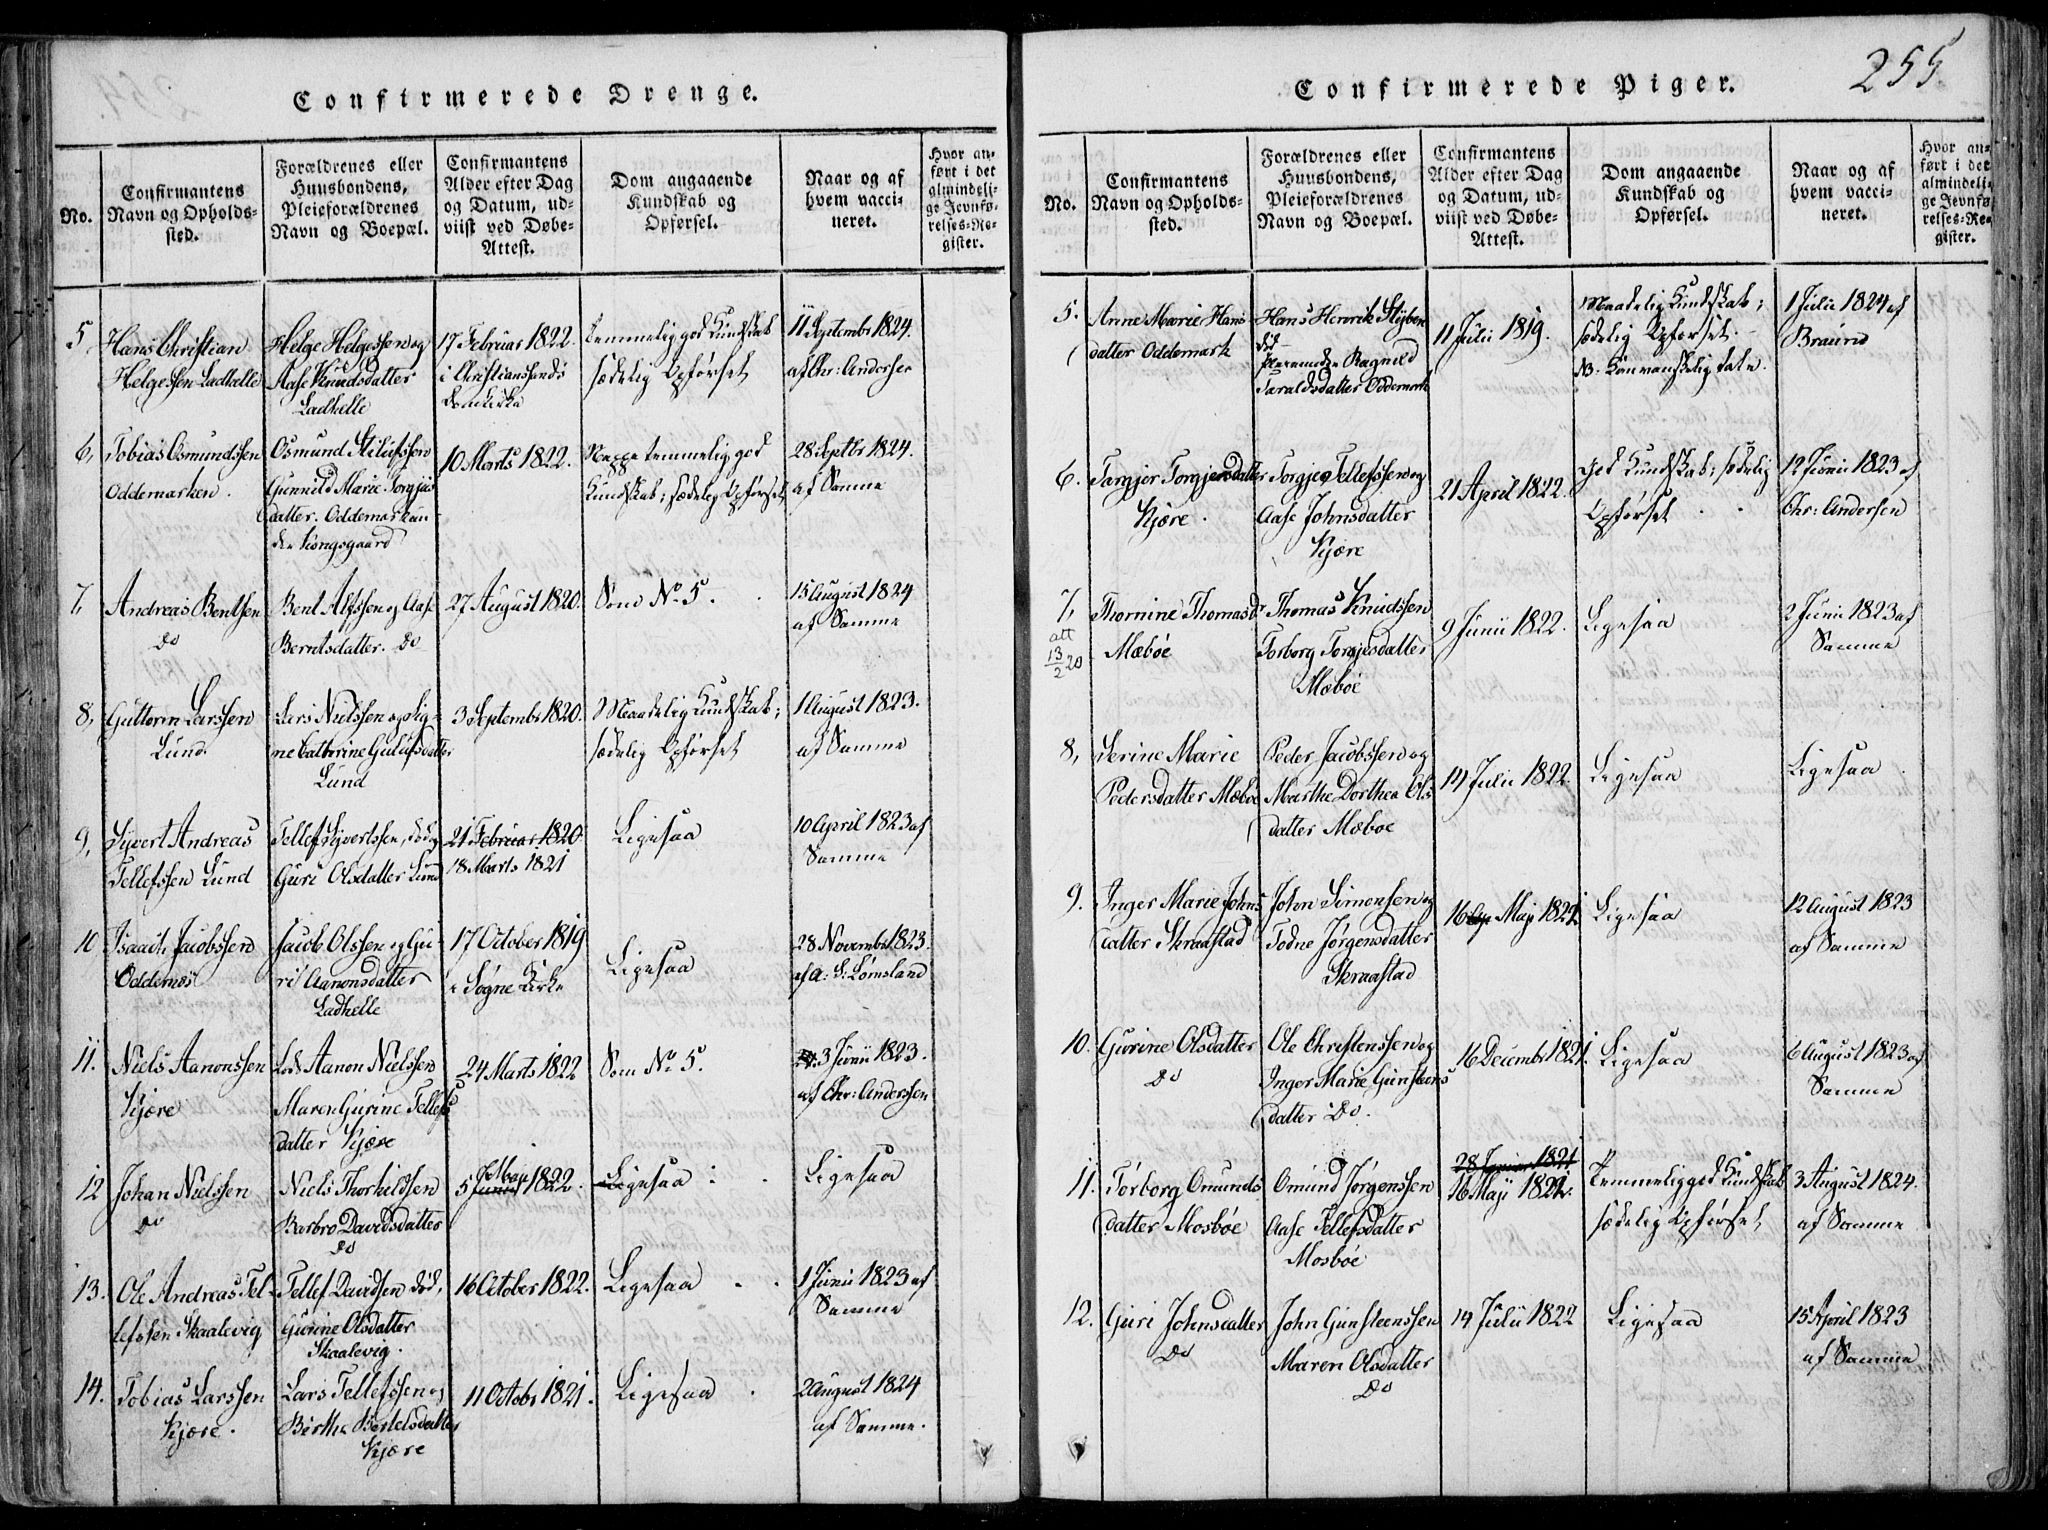 255
Confirmerede Drenge.
No.
Confirmantens
Navn og Opholds-
sted.
Forældrenes eller
Huusbondens,
Pleieforældrenes
Navn og Boepæl.
Confirmantens
Alder efter Dag
og Datum, ud-
viist ved Døbe-
Attest.
Dom angaaende
Kundskab og
Opførsel.
Naar og af
hvem vacci-
neret.
Hvor an-
ført i det
almindeli-
ge Jevnfø-
relses-Re-
gister.
5
Hans Christian
Helgessen Ladhelle
Helge Helgessen og
Aase Knudsdatter
Ladhelle
17 Februar 1822.
i Christianssands
Domkirke
Temmelig god Kundskab
sædelig Opførsel
11 Septembr 1824.
af Chr: Andersen
6,
Tobias Osmundssen
Oddemarken.
Osmund
Gunnild Marie Torgjus
datter. Oddemark un-
der Kongsgaard
10 Marts 1822.
temmelig god
Kundskab; sædelig Opførsel
28 Septbr 1824.
af Samme
7,
Andreas Bentsen
Do
Bent Alfssen og Aase
Berntsdatter. Do
27 August 1820.
Som No 5.
15 August 1824
af Samme
8,
Guttorm Larssen
Lund.
Lars Nielssen og Sig-
ne Cathrine Gulufsdatter
Lund
3 Septembr 1820.
Maadelig Kundskab;
sædelig Opførsel
1 August 1823.
af Samme
9,
Syvert Andreas
Tellefssen Lund
Tellef Syvertssen, død,
Guri Olsdatter Lund
21 Februar 1820
18 Marts 1821
Ligesaa
10 April 1823 af
Samme
10
Isaach Jacobssen
Oddernes
Jacob Olssen og Gu-
ri Aanonsdatter
Ladhelle
17 October 1819
i Søgne Kirke
Ligesaa
28 Novembr 1823.
af A: S: Lømsland
11.
Niels Aanonssen
Kjære
Aanon Nielssen
Maren Gurine Tellefs
datter Kjære
24 Marts 1822
Som No 5.
3 Junii 1823.
af Chr: Anderssen
12
Johan Nielssen
Do
Niels Thorkildsen
Barbro Davidsdatter
Do
5 Junii 1822.
Ligesaa
Ligesaa
13.
Ole Andreas Tel-
lefssen Skaalevig
Tellef Davidsen død,
Gurine Olsdatter
Skaalevig.
16 October 1822.
Ligesaa
1 Junii 1823 af
Samme
14.
Tobias Larssen
Kjære.
Lars Tellefssen og
Birthe Bertelsdatter
Kjære
11 Octobr 1821.
Ligesaa
2 August 1824
af Samme.
Confirmerede Piger.
No.
Confirmantens
Navn og Opholds-
sted.
Forældrenes eller
Huusbondens,
Pleieforældrenes
Navn og Boepæl.
Confirmantens
Alder efter Dag
og Datum, ud-
viist ved Døbe-
Attest.
Dom angaaende
Kundskab og
Opførsel.
Naar og af
hvem vacci-
neret.
Hvor an-
ført i det
almindeli-
ge Jevnfø-
relses-Re-
gister.
5.
Anne Marie Hans
datter Oddemark
Hans Henrik
Ragnild
Taraldsdatter Oddemark
11 Julii 1819.
Maadelig Kundskab;
sædelig Opførsel.
NB. Kun vanskelig tale.
1 Julii 1824 af
Braund
6.
Targjer Torgjersdatter
Kjære.
Torgjer Tellefssen og
Aase Johnsdatter
Kjære
21 April 1822.
God Kundskab; sædelig
Opførsel
12 Junii 1823 af
Chr: Andersen
7,
att
13/2 20
Thomine Thomasd
Mæbøe
Thomas Knudssen
Torborg Torgjesdatter
Mæbøe
9 Junii 1822.
Ligesaa
2 Junii 1823 af
Samme
8,
Serine Marie
Pedersdatter Mæbøe
Peder Jacobssen og
Marthe Dorthea Ols
datter Mæbøe
14 Julii 1822.
Ligesaa
Ligesaa
9.
Inger Marie Johns
datter Skraastad
John Simonsen og
Todne Jørgensdatter
Skraastad
16 Maji 1822
Ligesaa
12 August 1823
af Samme
10.
Gurine Olsdatter
Do
Ole Christenssen og
Inger Marie Gunsteens
datter Do.
16 Decembr 1821.
Ligesaa
6 August 1823 af
Samme
11.
Torborg Omunds
datter Mosbøe
Omund Jørgenssen
Aase Tellefsdatter
Mosbøe
28 1821
16 Maji 1822.
Temmelig god Kundskab
sædelig Opførsel
3 August 1824.
af Samme
12.
Guri Johnsdatter
Do
John Gunsteenssen
Maren Olsdatter
Do
14 Julii 1822
Ligesaa
15 April 1823
af Samme